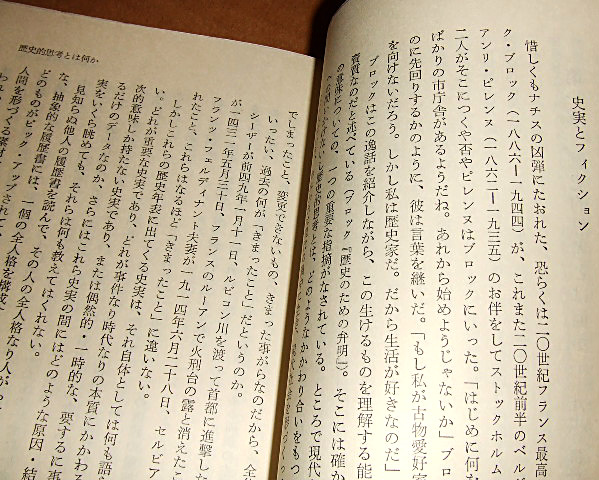 史実とフィクション
惜しくもナチスの凶弾にたおれた、恐らくは二〇世紀フランス最高
ク・ブロック（一八八六―一九四四）が、これまた二〇世紀前半のベルギ
アンリ・ピレンヌ（一八六二―一九三五）のお伴をしてストックホルム
二人がそこにつくや否やピレンヌはブロックにいった。「はじめに何を
ばかりの市庁舎があるようだね。あれから始めようじゃないか」ブロ
のに先回りするかのように、彼は言葉を継いだ。「もし私が古物愛好家
を向けないだろう。しかし私は歴史家だ。だから生活が好きなのだ」
ブロックはこの逸話を紹介しながら、この生けるものを理解する能
資質なのだと述べている（ブロック『歴史のための弁明』）。そこには確か
の意味についての、一つの重要な指摘がなされている。ところで現代
歴史的思考とは、どのようなかかわり合いをもつ
歴史的思考とは何か
でしまったこと、変更できないもの、きまった事がらなのだから、全
いったい、過去の何が「きまったこと」だというのか。
シーザーが前四九年一月十一日、ルビコン川を渡って首都に進撃した
が一四三一年五月三十日、フランスのルーアンで火刑台の露と消えたこ
フランツ・フェルディナント夫妻が一九一四年六月二十八日、セルビア
れたこと、これらはなるほど「きまったこと」に違いない。
しかしこれらの歴史年表に出てくる史実は、それ自体としては何も語
い。どれが重要な史実であり、どれが事件なり時代なりの本質にかかわる
次的意味しか持たない史実であり、または偶然的・一時的な、要するに事
るだけのデータなのか、さらにはこれら史実の間にはどのような原因・結
実をいくら眺めても、それらは何も教えてはくれない。
見知らぬ他人の履歴書を読んで、その人の全人格なり人が
な、抽象的な履歴書には、一個の全人格を構成
どのものがピック・アップされて
人間を形づくる素材